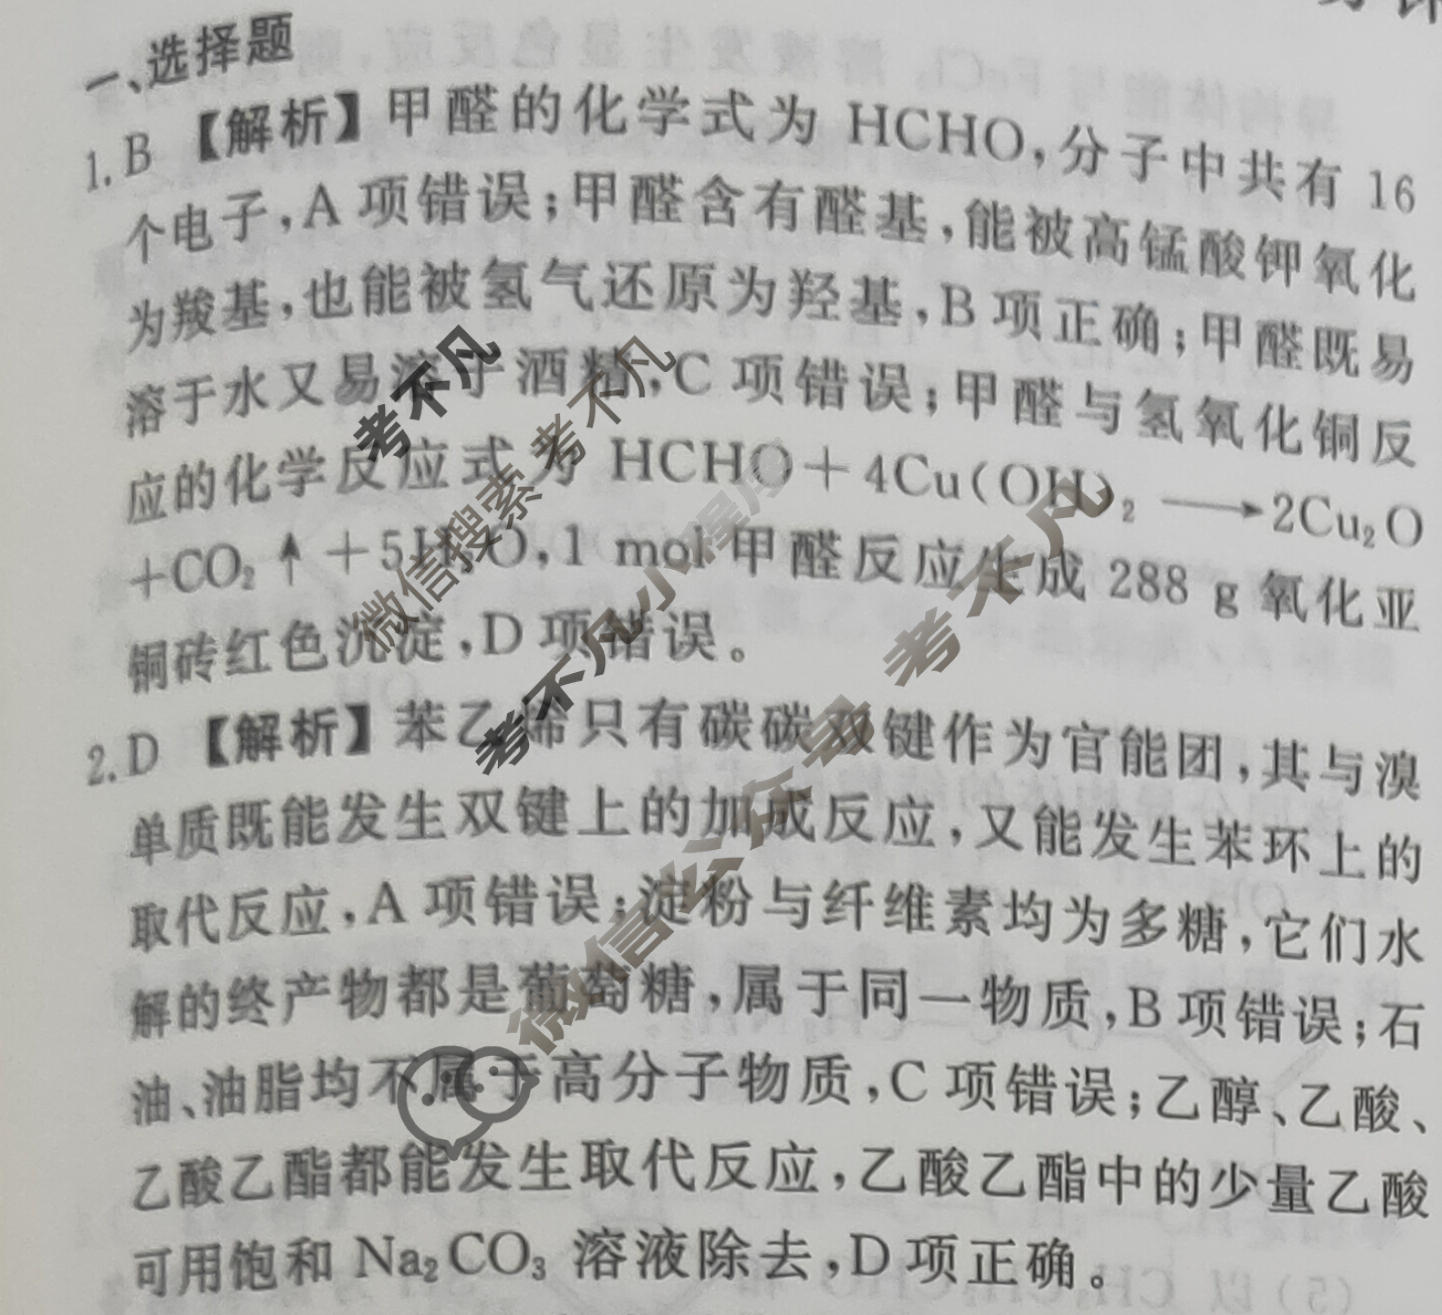 一、选择题
1. B 【解析】甲醛的化学式为 HCHO,分子中共有 16
个电子,A 项错误;甲醛含有醛基,能被高锰酸钾氧化
为羧基,也能被氢气还原为羟基,B 项正确;甲醛既易
溶于水又易溶于酒精,C 项错误;甲醛与氢氧化铜反
应的化学反应式为 HCHO+4Cu(OH)₂ ⟶2Cu₂O
+CO₂↑+5H₂O,1 mol 甲醛反应生成 288 g 氧化亚
铜砖红色沉淀,D 项错误。
2. D 【解析】苯乙烯只有碳碳双键作为官能团,其与溴
单质既能发生双键上的加成反应,又能发生苯环上的
取代反应,A 项错误;淀粉与纤维素均为多糖,它们水
解的终产物都是葡萄糖,属于同一物质,B 项错误;石
油、油脂均不属于高分子物质,C 项错误;乙醇、乙酸、
乙酸乙酯都能发生取代反应,乙酸乙酯中的少量乙酸
可用饱和 Na₂CO₃ 溶液除去,D 项正确。
考不凡
微信搜索 考不凡
考不凡小程序
微信公众号 考不凡